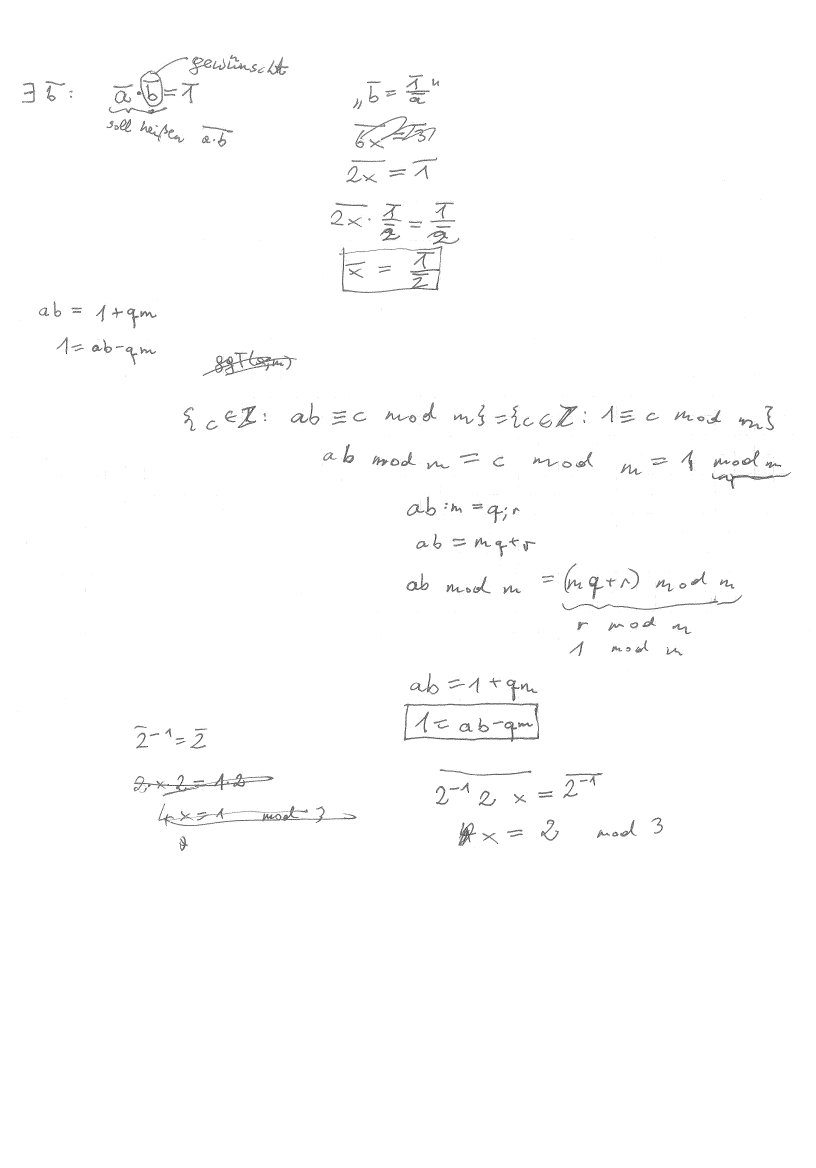 gewünscht
∃ b̅: a̅·b̅ = 1̅
soll heißen a·b
„b̅ = 1̅/a̅"
2x = 1̅
2x · 1̅/2̅ = 1̅/2̅
x̅ = 1̅/2̅
ab = 1 + qm
1 = ab - qm
ggT(a,m)
{c ∈ ℤ: ab ≡ c mod m} = {c ∈ ℤ: 1 ≡ c mod m}
ab mod m = c mod m = 1 mod m
ab : m = q; r
ab = mq + r
ab mod m = (mq + r) mod m
r mod m
1 mod m
ab = 1 + qm
1 = ab - qm
2̅⁻¹ = 2̅
2·x·2 = 1·2
4x = 1 mod 3
2⁻¹ 2 x = 2⁻¹
x = 2 mod 3